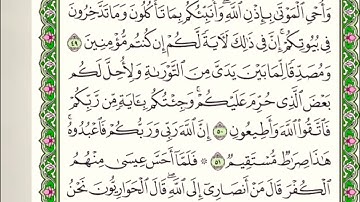 وَأُحْيِ ٱلْمَوْتَىٰ بِإِذْنِ ٱللَّهِ ۖ وَأُنَبِّئُكُم بِمَا تَأْكُلُونَ وَمَا تَدَّخِرُونَ
فِى بُيُوتِكُمْ ۚ إِنَّ فِى ذَٰلِكَ لَـَٔايَةً لَّكُمْ إِن كُنتُم مُّؤْمِنِينَ ٤٩
وَمُصَدِّقًا لِّمَا بَيْنَ يَدَىَّ مِنَ ٱلتَّوْرَىٰةِ وَلِأُحِلَّ لَكُم
بَعْضَ ٱلَّذِى حُرِّمَ عَلَيْكُمْ ۚ وَجِئْتُكُم بِـَٔايَةٍ مِّن رَّبِّكُمْ
فَٱتَّقُوا۟ ٱللَّهَ وَأَطِيعُونِ ٥٠ إِنَّ ٱللَّهَ رَبِّى وَرَبُّكُمْ فَٱعْبُدُوهُ ۗ
هَـٰذَا صِرَٰطٌ مُّسْتَقِيمٌ ٥١ ۞ فَلَمَّآ أَحَسَّ عِيسَىٰ مِنْهُمُ
ٱلْكُفْرَ قَالَ مَنْ أَنصَارِىٓ إِلَى ٱللَّهِ ۖ قَالَ ٱلْحَوَارِيُّونَ نَحْنُ